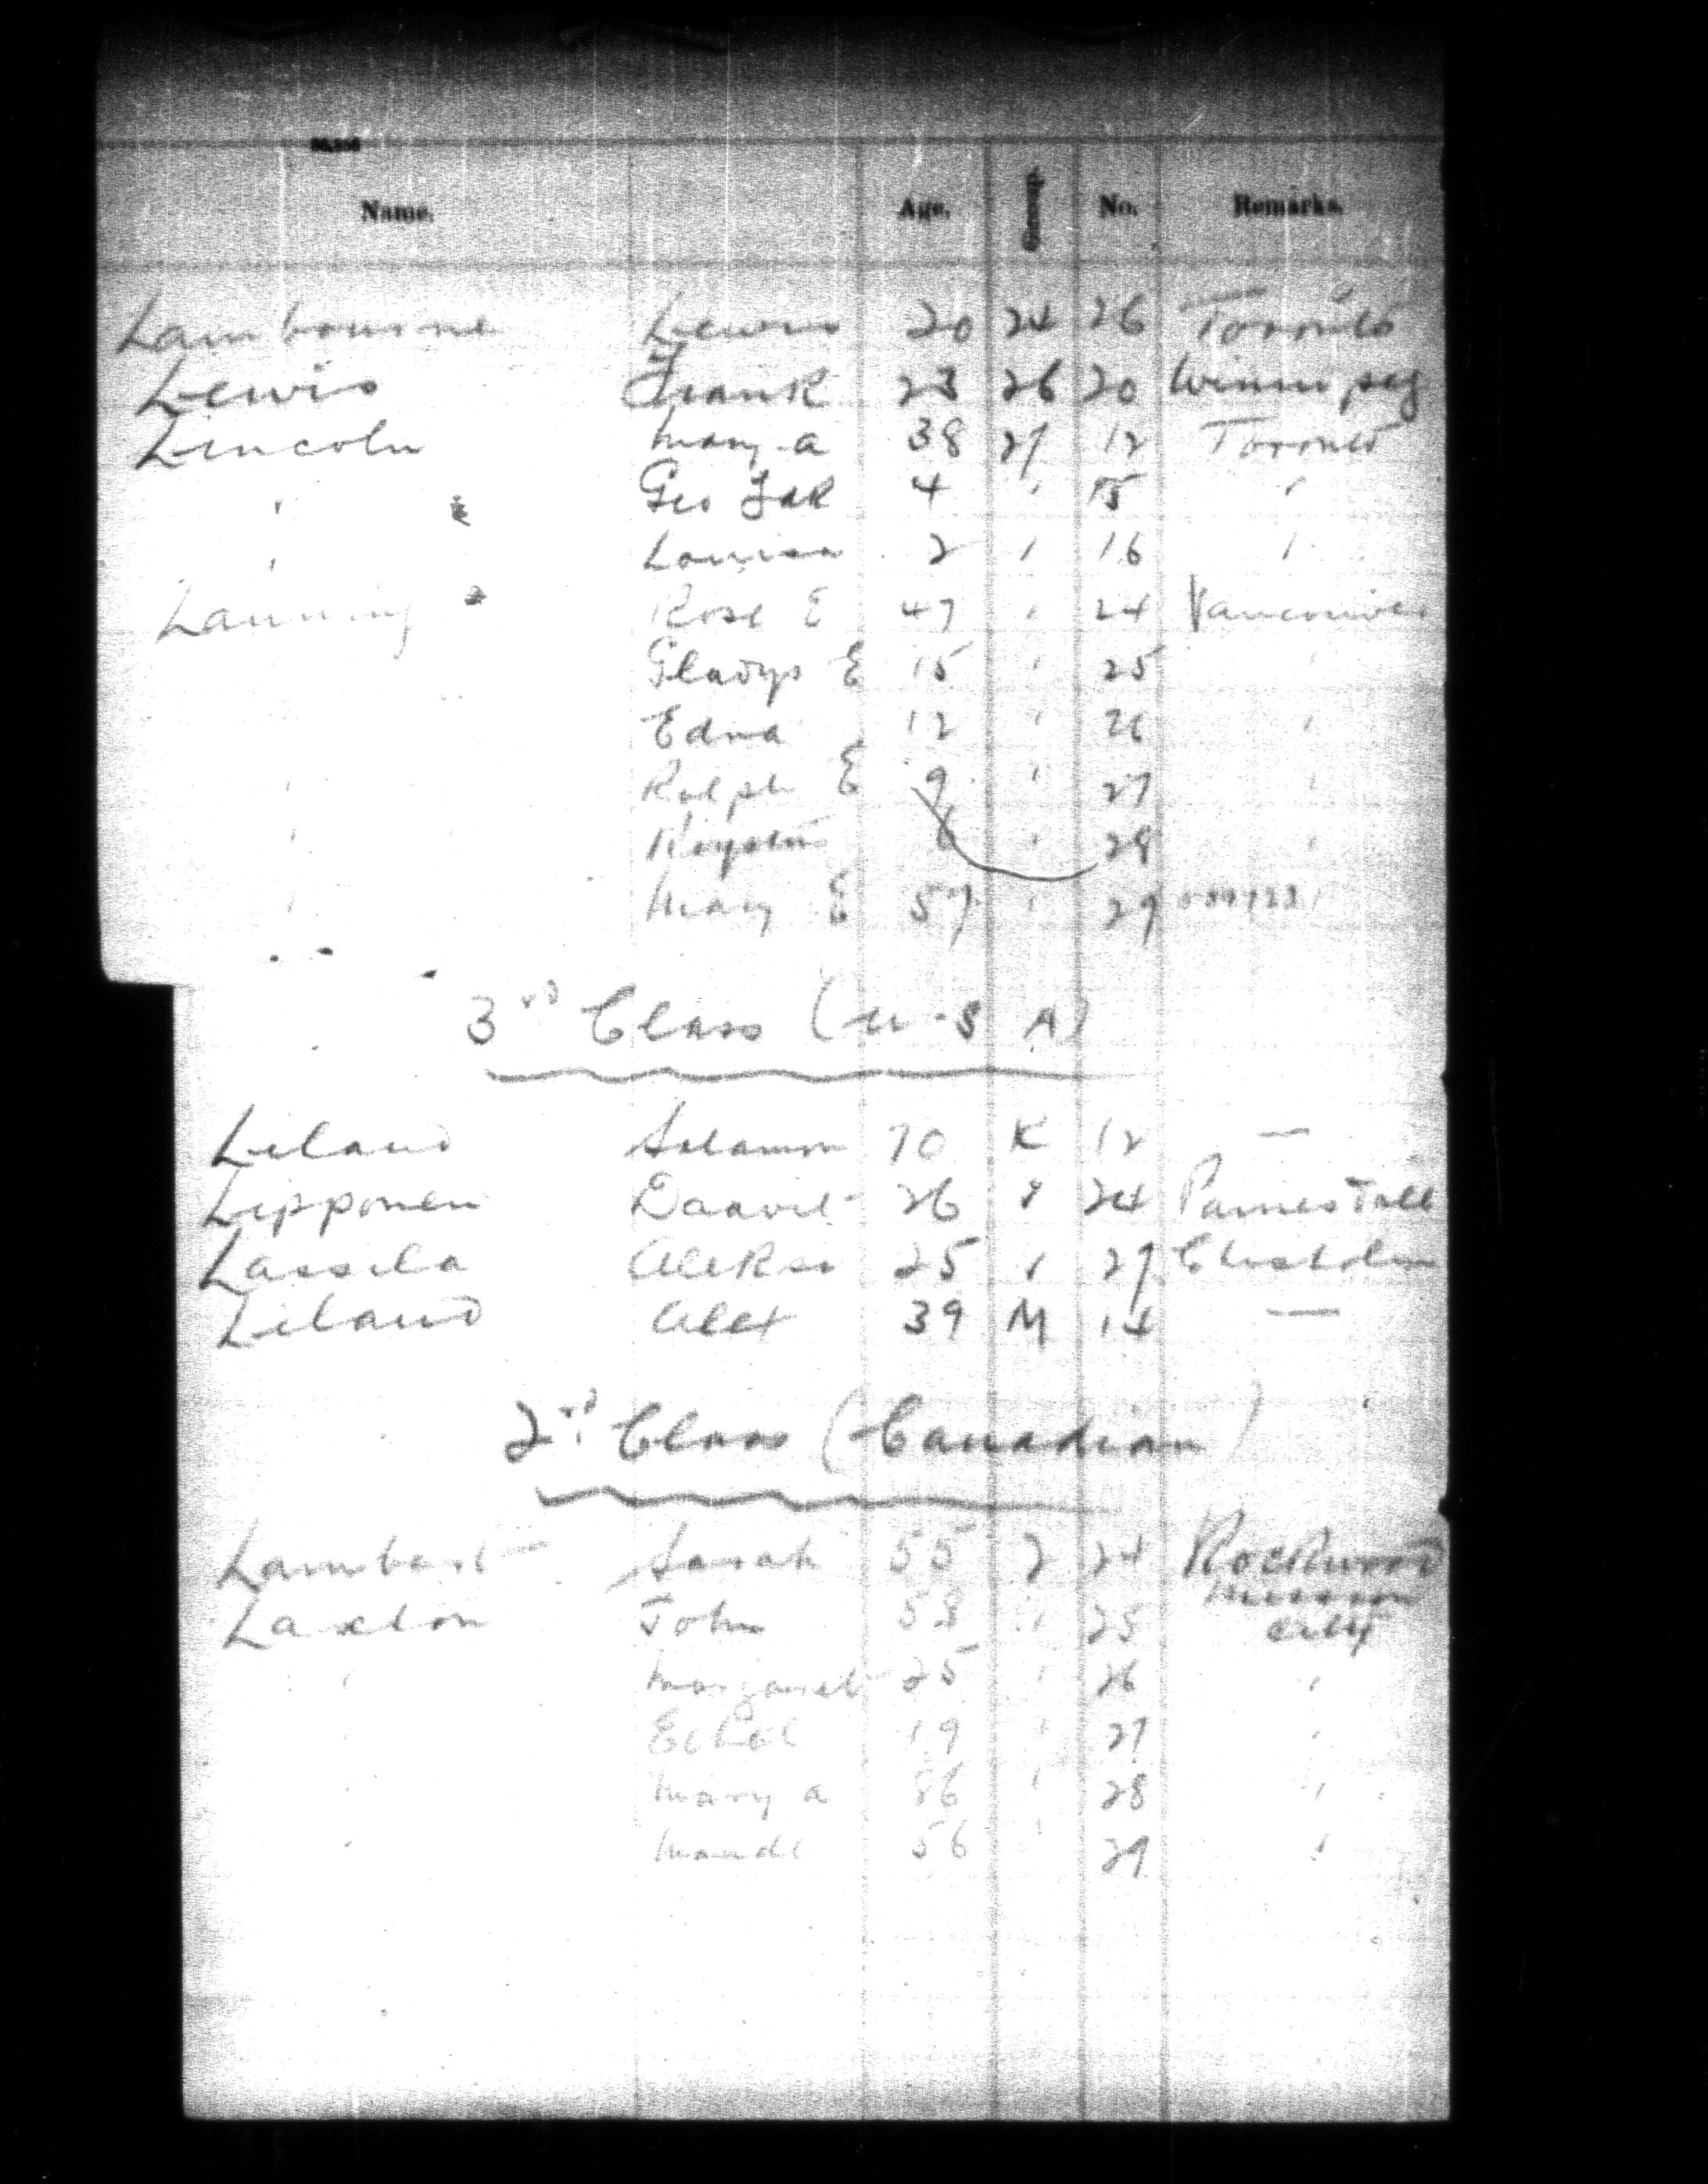 Name. Age. No. Remarks.
Lambourne Lewis 20 24 26 Toronto
Lewis Frank 23 26 20 Winnipeg
Lincoln Mary A 38 27 12 Toronto
" Geo 4 " 15 "
" Louisa 2 " 16 "
Lanning Rose E 47 " 24 Vancouver
Gladys E 15 " 25 "
Edna 12 " 26 "
" Ralph E 9 " 27 "
" 6 " 28 "
" Mary E 57 " 29
3rd Class (U.S A)
Leland Salamon 70 K 12 —
Lipponen Daavit 26 " 24
Lassila Aleksi 25 " 27 Chisholm
Leland Alex 39 M 14 —
2nd Class (Canadian)
Lambert Sarah 55 2 24 Rockwood
Laxton John 58 " 25 Mission
City
" Margaret 25 " 26 "
" Ethel 19 " 27 "
" Mary A " 28 "
" Maude 56 " 29 "